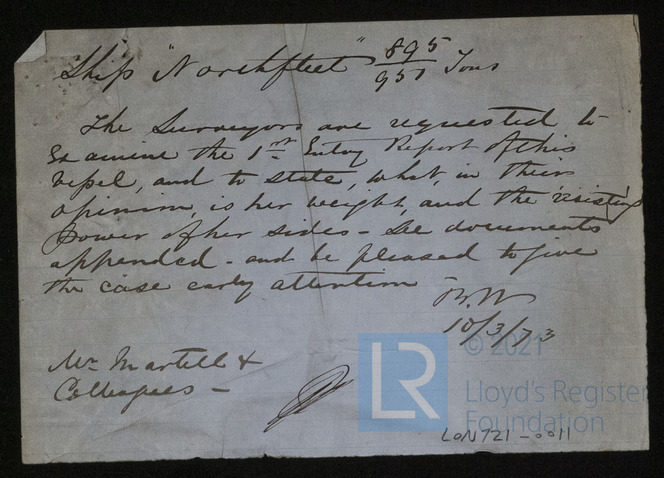 Ship "Northfleet" 895/951 Tons
The Surveyors are requested to
Examine the 1st Entry Report of this
Vessel, and to state, what, in their
opinion, is her weight, and the resisting
Power of her sides - See documents
appended - and be pleased to give
the case early attention
B.W
10/3/73
Mr Martell &
Colleagues -
LR
© 2021
Lloyd's Register
Foundation
LON721-0011